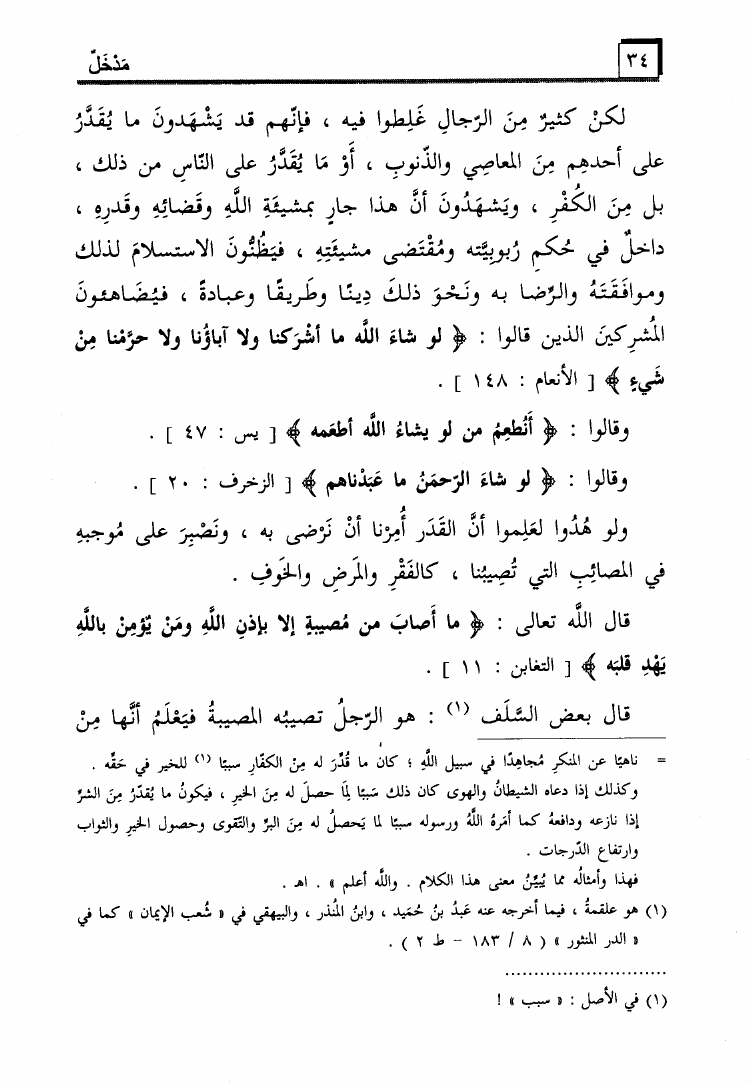 ٣٤
مَدْخَلٌ
لكنْ كثيرٌ مِنَ الرّجالِ غَلِطوا فيه ، فإنّهم قد يَشْهَدونَ ما يُقَدَّرُ
على أحدهِم مِنَ المعاصِي والذّنوبِ ، أَوْ مَا يُقَدَّرُ على النّاسِ من ذلك ،
بل مِنَ الكُفْرِ ، ويَشهَدُونَ أنَّ هذا جارٍ بمشيئَةِ اللَّهِ وقَضائِهِ وقدرِهِ ،
داخلٌ في حُكمِ رُبوبِيَّته ومُقْتَضى مشيئَتِهِ ، فيَظُنُّونَ الاستسلامَ لذلك
وموافَقَتَهُ والرِّضا به ونَحْوَ ذلكَ دِينًا وطَريقًا وعبادةً ، فيُضَاهئونَ
المُشرِكينَ الذين قالوا : ﴿ لو شاءَ اللَّه ما أشْرَكنا ولا آباؤُنا ولا حرَّمْنا مِنْ
شَيءٍ ﴾ [ الأنعام : ١٤٨ ] .
وقالوا : ﴿ أَنُطعِمُ من لو يشاءُ اللَّه أطعَمه ﴾ [ يس : ٤٧ ] .
وقالوا : ﴿ لو شاءَ الرّحمَنُ ما عَبَدْناهم ﴾ [ الزخرف : ٢٠ ] .
ولو هُدُوا لعَلِموا أنَّ القَدَر أُمِرْنا أنْ نَرْضى به ، ونَصْبِرَ على مُوجبهِ
في المصائِبِ التي تُصِيبُنا ، كالفَقْرِ والمرَضِ والخَوفِ .
قال اللَّه تعالى : ﴿ ما أَصابَ من مُصيبةٍ إلا بإذنِ اللَّهِ ومَنْ يُؤمِنْ باللَّهِ
يَهْدِ قلبَه ﴾ [ التغابن : ١١ ] .
قال بعض السَّلَف (١) : هو الرّجلُ تصيبُه المصيبةُ فيَعْلَمُ أنَّها مِنْ
= ناهيًا عن المنكرِ مُجاهِدًا في سبيل اللَّهِ ؛ كان ما قُدِّرَ له مِنَ الكفّارِ سببًا (١) للخير في حَقِّه .
وكذلك إذا دعاه الشيطانُ والهوى كان ذلك سَببًا لِمَا حصلَ له مِنَ الخيرِ ، فيكونُ ما يُقدّرُ مِنَ الشرِّ
إذا نازعه ودافعهُ كما أمَرهُ اللَّهُ ورسوله سببًا لما يَحصلُ له مِنَ البرِّ والتّقوى وحصولِ الخيرِ والثواب
وارتفاعِ الدّرجات .
فهذا وأمثالُه مما يُبيّنُ معنى هذا الكلام . واللَّه أعلم » . اهـ .
(١) هو علقمةُ ، فيما أخرجه عنه عَبدُ بنُ حُمَيد ، وابنُ المُنذر ، والبيهقي في « شُعب الإيمان » كما في
« الدر المنثور » ( ٨ / ١٨٣ – ط ٢ ) .
............................
(١) في الأصل : « سبب » !